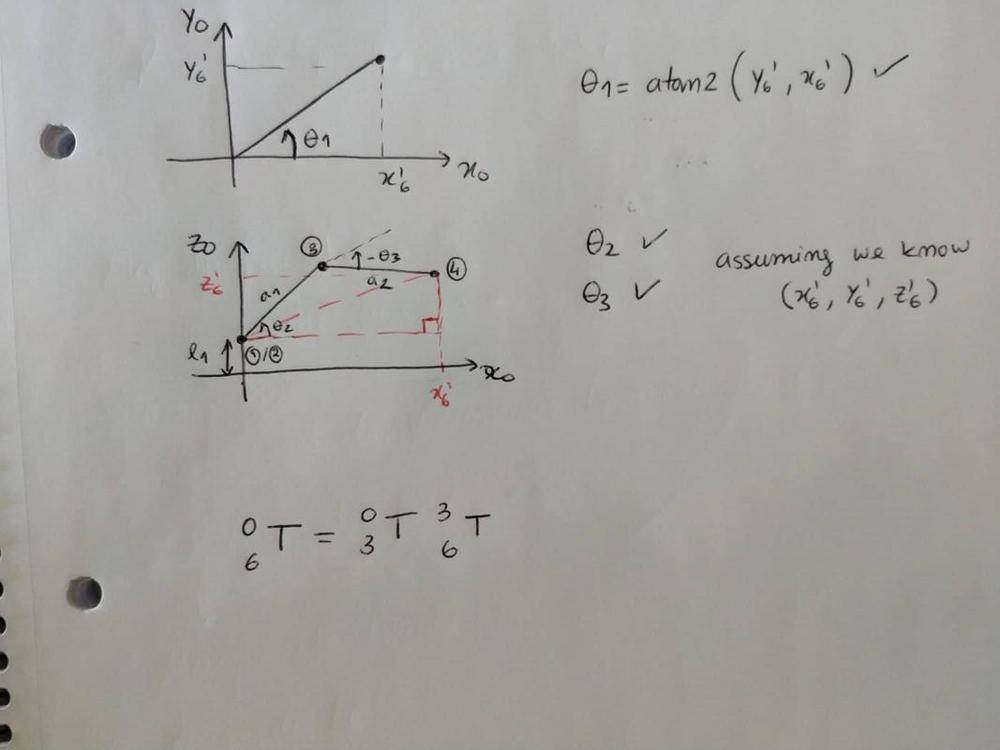 Y0
Y6'
θ1
x6'
x0
θ1 = atan2 (Y6', x6') ✓
Z0
③
-θ3
④
Z6'
a1
a2
θ2
l1
①/②
x0
x6'
θ2 ✓
θ3 ✓
assuming we know
(x6', Y6', Z6')
0 6 T = 0 3 T 3 6 T